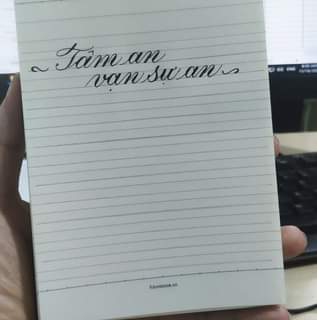 Tâm an
vạn sự an